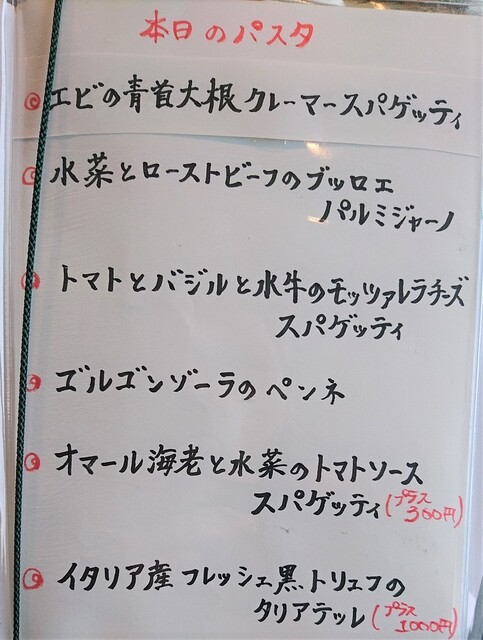 本日のパスタ
◎エビの青首大根クレーマースパゲッティ
◎水菜とローストビーフのブッロエ
パルミジャーノ
◎トマトとバジルと水牛のモッツァレラチーズ
スパゲッティ
◎ゴルゴンゾーラのペンネ
◎オマール海老と水菜のトマトソース
スパゲッティ(プラス300円)
◎イタリア産フレッシュ黒トリュフの
タリアテッレ(プラス1000円)